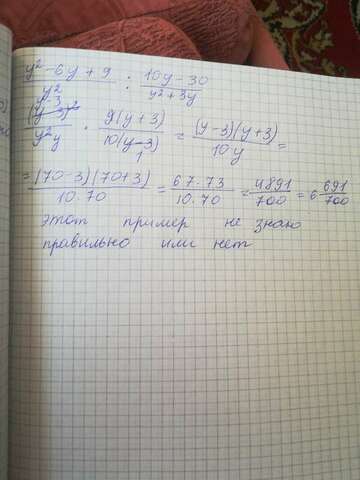 (y² - 6y + 9)/y² : (10y - 30)/(y² + 3y)
y-3
(y-3)²/y²y · y(y+3)/10(y-3) = (y-3)(y+3)/10y =
1
= (70-3)(70+3)/10·70 = 67·73/10·70 = 4891/700 = 6 691/700
этот пример не знаю
правильно или нет